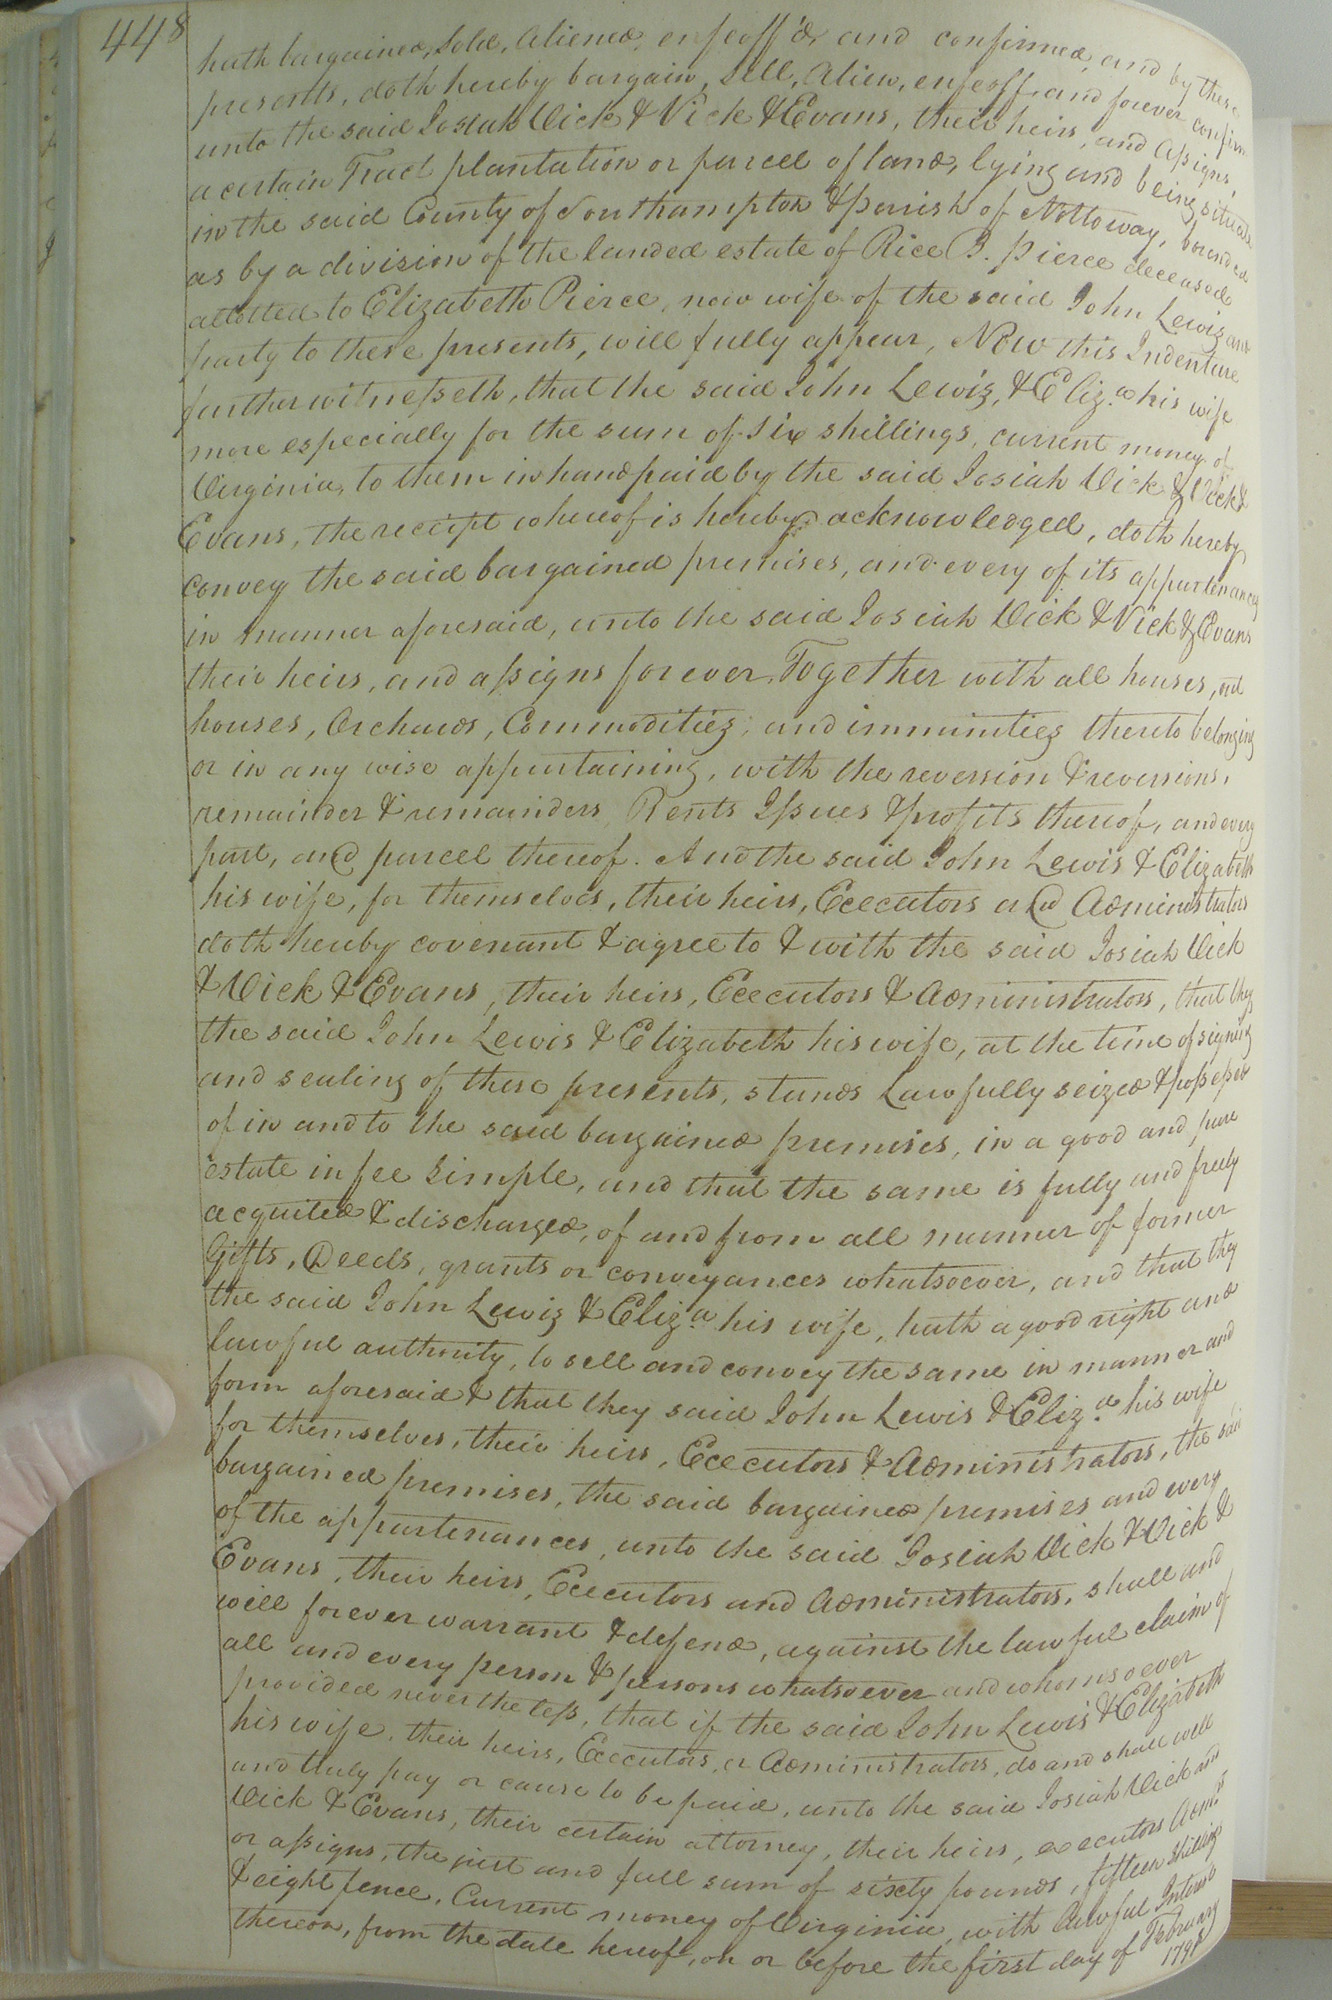 448
hath bargained, sold, aliened, enfeoff'd, and confirmed, and by these
presents, doth hereby bargain, sell, alien, enfeoff, and forever confirm
unto the said Josiah Vick & Vick & Evans, their heirs, and assigns,
a certain Tract plantation or parcel of land, lying and being situate
in the said County of Southampton & parish of Nottoway, bounded
as by a division of the landed estate of Rice B. Pierce deceased
allotted to Elizabeth Pierce, now wife of the said John Lewis and
party to these presents, will fully appear, Now this Indenture
further witnesseth, that the said John Lewis, & Eliz.a his wife
more especially for the sum of six shillings, current money of
Virginia, to them in hand paid by the said Josiah Vick & Vick &
Evans, the receipt whereof is hereby acknowledged, doth hereby
convey the said bargained premises, and every of its appurtenances
in manner aforesaid, unto the said Josiah Vick & Vick & Evans
their heirs, and assigns forever, Together with all houses, out
houses, Orchards, Commodities, and immunities thereto belonging
or in any wise appurtaining, with the reversion & reversions,
remainder & remainders, Rents Issues & profits thereof, and every
part, and parcel thereof. And the said John Lewis & Elizabeth
his wife, for themselves, their heirs, Executors and Administrators
doth hereby covenant & agree to & with the said Josiah Vick
& Vick & Evans, their heirs, Executors & Administrators, that they
the said John Lewis & Elizabeth his wife, at the time of signing
and sealing of these presents, stands Lawfully seized & possessed
of in and to the said bargained premises, in a good and pure
estate in fee Simple, and that the same is fully and freely
acquited & discharged, of and from all manner of former
Gifts, Deeds, grants or conveyances whatsoever, and that they
the said John Lewis & Eliz.a his wife, hath a good right and
lawful authority, to sell and convey the same in manner and
form aforesaid & that they said John Lewis & Eliz.a his wife
for themselves, their heirs, Executors & Administrators, the said
bargained premises, the said bargained premises and every
of the appurtenances, unto the said Josiah Vick & Vick &
Evans, their heirs, Executors and Administrators, shall and
will forever warrant & defend, against the lawful claim of
all and every person & persons whatsoever and whomsoever
provided nevertheless, that if the said John Lewis & Elizabeth
his wife, their heirs, Executors, or Administrators, do and shall well
and truly pay or cause to be paid, unto the said Josiah Vick and
Vick & Evans, their certain attorney, their heirs, executors Adm.rs
or assigns, the just and full sum of sixty pounds, fifteen shillings
& eight pence, Current money of Virginia, with Lawful Interest
thereon, from the date hereof, on or before the first day of February
1798